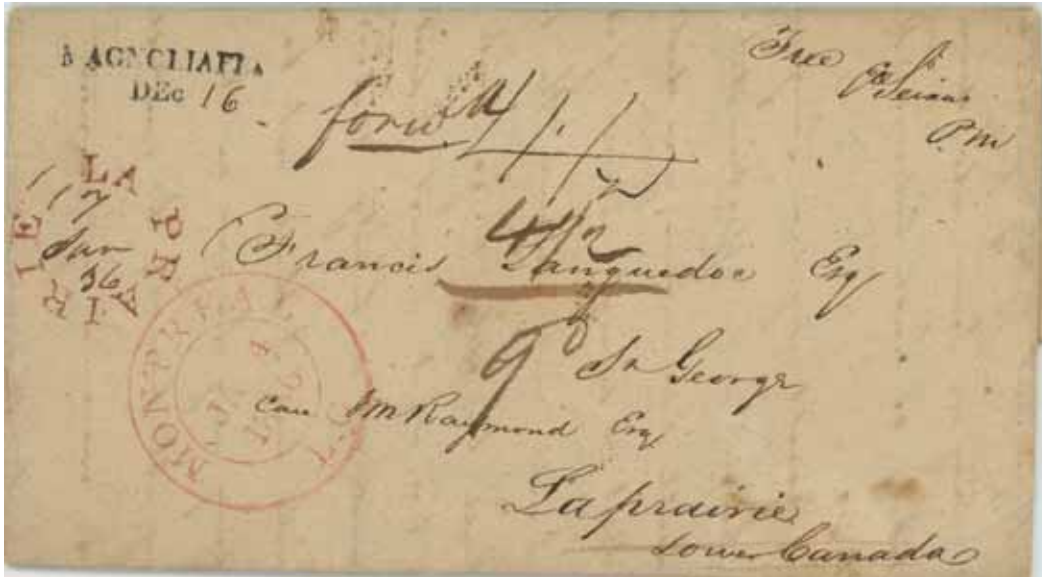 MAGNOLIA Fl.
DEC 16
Free
P.M
forwd 1/1
LA PRAIRIE
17
Jan
36
4 1/2
Francis Languedoc Esq
9d
St George
MONTREAL L.C
JA
care M Raymond Esq
Laprairie
Lower Canada